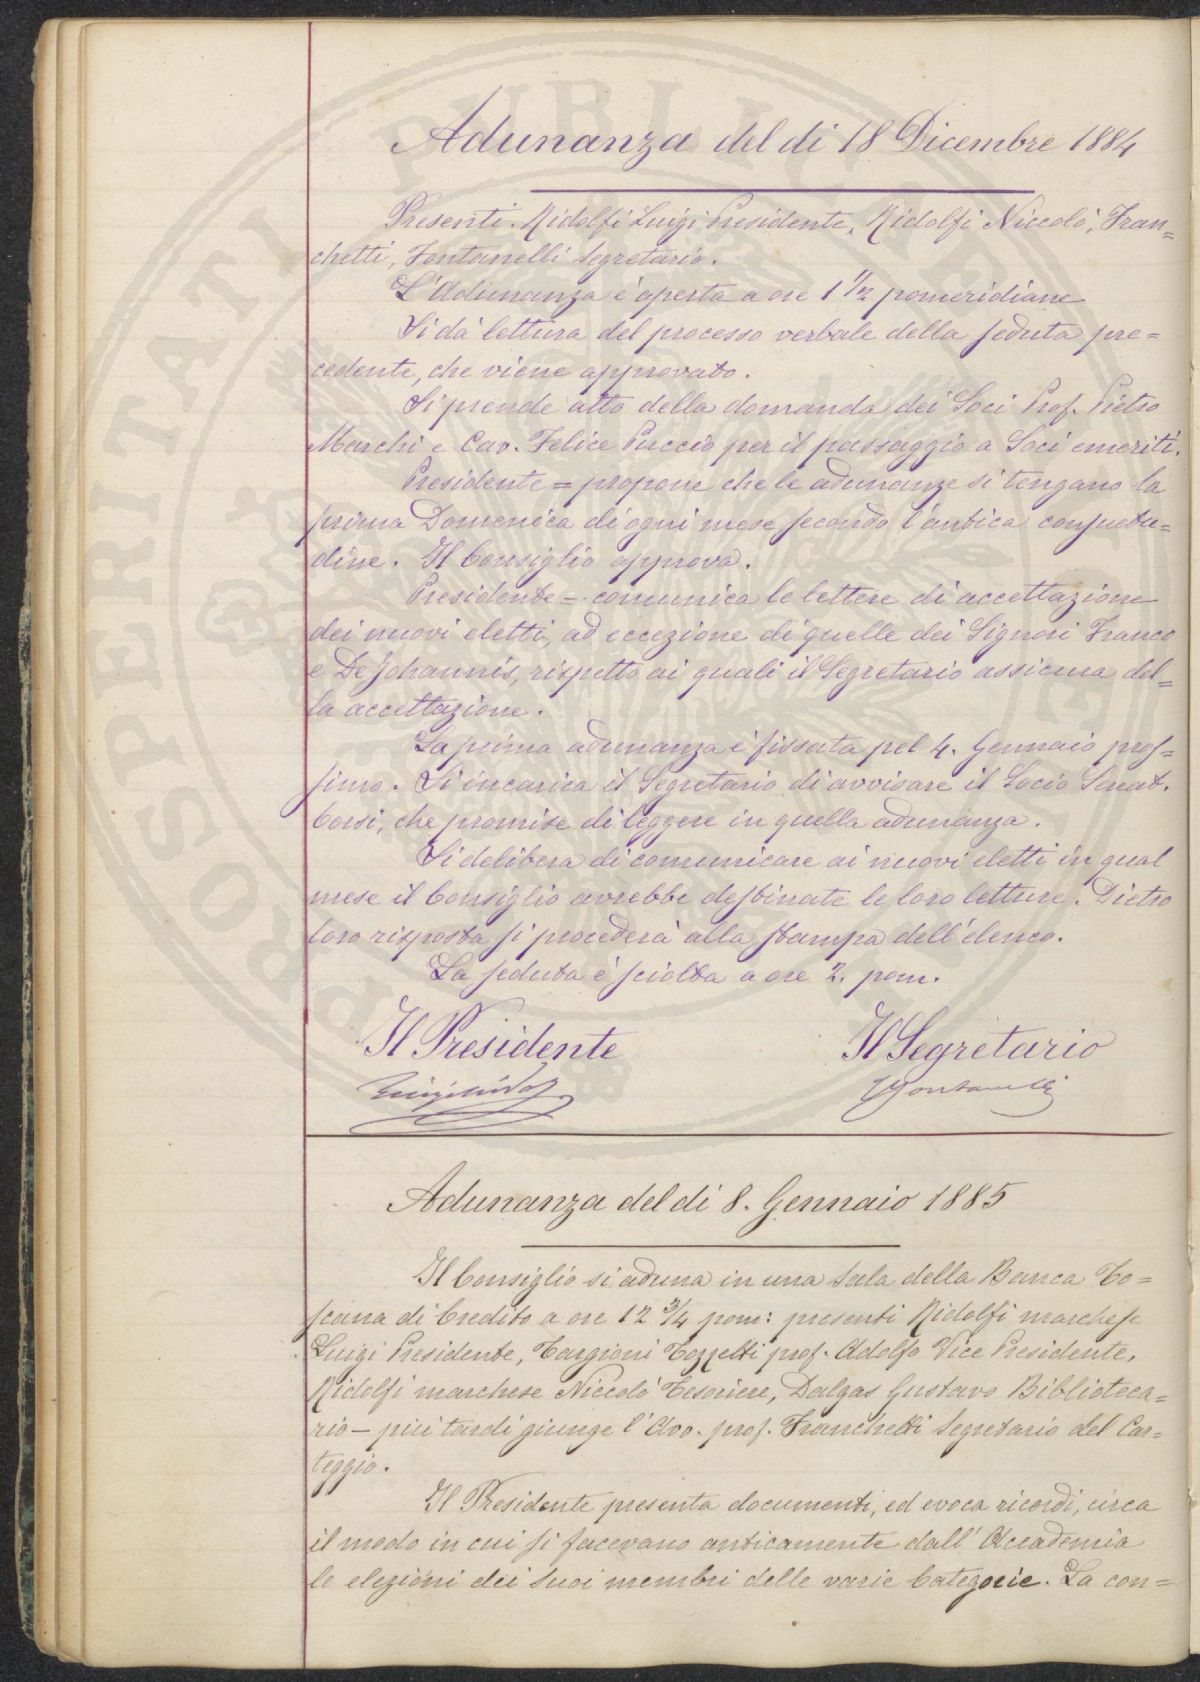 Adunanza del di 18 Dicembre 1884
Presenti. Ridolfi Luigi Presidente, Ridolfi Niccolò, Fran=
chetti, Fontanelli Segretario.
L'Adunanza è aperta a ore 1 1/2 pomeridiane
Si dà lettura del processo verbale della seduta pre=
cedente, che viene approvato.
Si prende atto della domanda dei Soci Prof. Pietro
Marchi e Cav. Felice Puccio per il passaggio a Soci emeriti.
Presidente = propone che le adunanze si tengano la
prima Domenica di ogni mese secondo l'antica consuetu=
dine. Il Consiglio approva.
Presidente = comunica le lettere di accettazione
dei nuovi eletti, ad eccezione di quelle dei Signori Franco
e De Johannis, rispetto ai quali il Segretario assicura del=
la accettazione.
La prima adunanza è fissata pel 4. Gennaio pros=
simo. Si incarica il Segretario di avvisare il Socio Senat.
Corsi, che promise di leggere in quella adunanza.
Si delibera di comunicare ai nuovi eletti in qual
mese il Consiglio avrebbe destinate le loro letture. Dietro
loro risposta si procederà alla stampa dell'elenco.
La seduta è sciolta a ore 2. pom.
Il Presidente Il Segretario
Luigi Ridolfi Fontanelli
Adunanza del di 8. Gennaio 1885
Il Consiglio si aduna in una sala della Banca To=
scana di Credito a ore 12 3/4 pom: presenti Ridolfi marchese
Luigi Presidente, Targioni Tozzetti prof. Adolfo Vice Presidente,
Ridolfi marchese Niccolò Tesoriere, Dalgas Gustavo Biblioteca=
rio – più tardi giunge l'Avv. prof. Franchetti Segretario del Car=
teggio.
Il Presidente presenta documenti, ed evoca ricordi, circa
il modo in cui si facevano anticamente dall'Accademia
le elezioni dei suoi membri delle varie Categorie. La con=
PROSPERITATI PUBLICAE